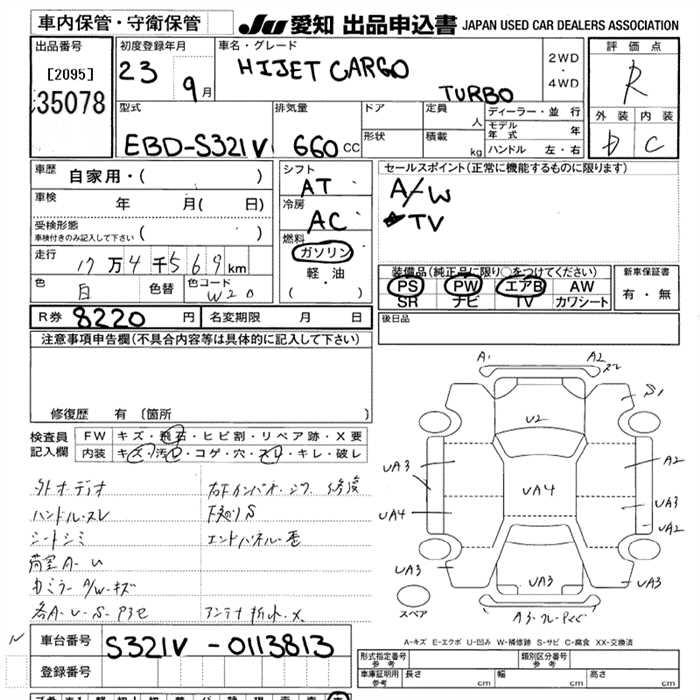 車内保管・守衛保管
JU 愛知 出品申込書 JAPAN USED CAR DEALERS ASSOCIATION
出品番号
[2095]
35078
初度登録年月
23 9月
車名・グレード
HIJET CARGO
TURBO
2WD
・
4WD
評価点
R
外装 内装
D C
型式
EBD-S321V
排気量
660 CC
ドア
形状
定員
人
積載
kg
ディーラー・並行
モデル年式 年
ハンドル 左・右
車歴
自家用・( )
車検
年 月( 日)
受検形態
車検付きのみ記入して下さい ( )
走行
17万4千569km
色
白
色替
色コード
W20
シフト
AT
冷房
AC
燃料
ガソリン
軽・油
( )
セールスポイント(正常に機能するものに限ります)
A/W
TV
装備品(純正品に限り○をつけてください)
PS PW エアB AW
SR ナビ TV カワシート
新車保証書
有・無
R券 8220円
名変期限 月 日
後日品
注意事項申告欄(不具合内容等は具体的に記入して下さい)
修復歴 有〔箇所 〕
検査員
記入欄
FW キズ・飛石・ヒビ割・リペア跡・X要
内装 キズ・汚れ・コゲ・穴・スレ・キレ・破レ
外オーディオ
ハンドル・スレ
シートシミ
荷室A・U
ミラーA/Wキズ
各A・U・S・P3C
修復
下廻りS
エンドパネル・歪
アンテナ折れ・X
A1
A2
S1
U2
UA3
A2
UA4
UA3
UA4
UA2
UA3
UA3
UA3
スペア
A-キズ E-エクボ U-凹み W-補修跡 S-サビ C-腐食 XX-交換済
車台番号 S321V-0113813
登録番号
形式指定番号
参考
類別区分番号
参考
車庫証明用
参考
長さ cm 幅 cm 高さ cm